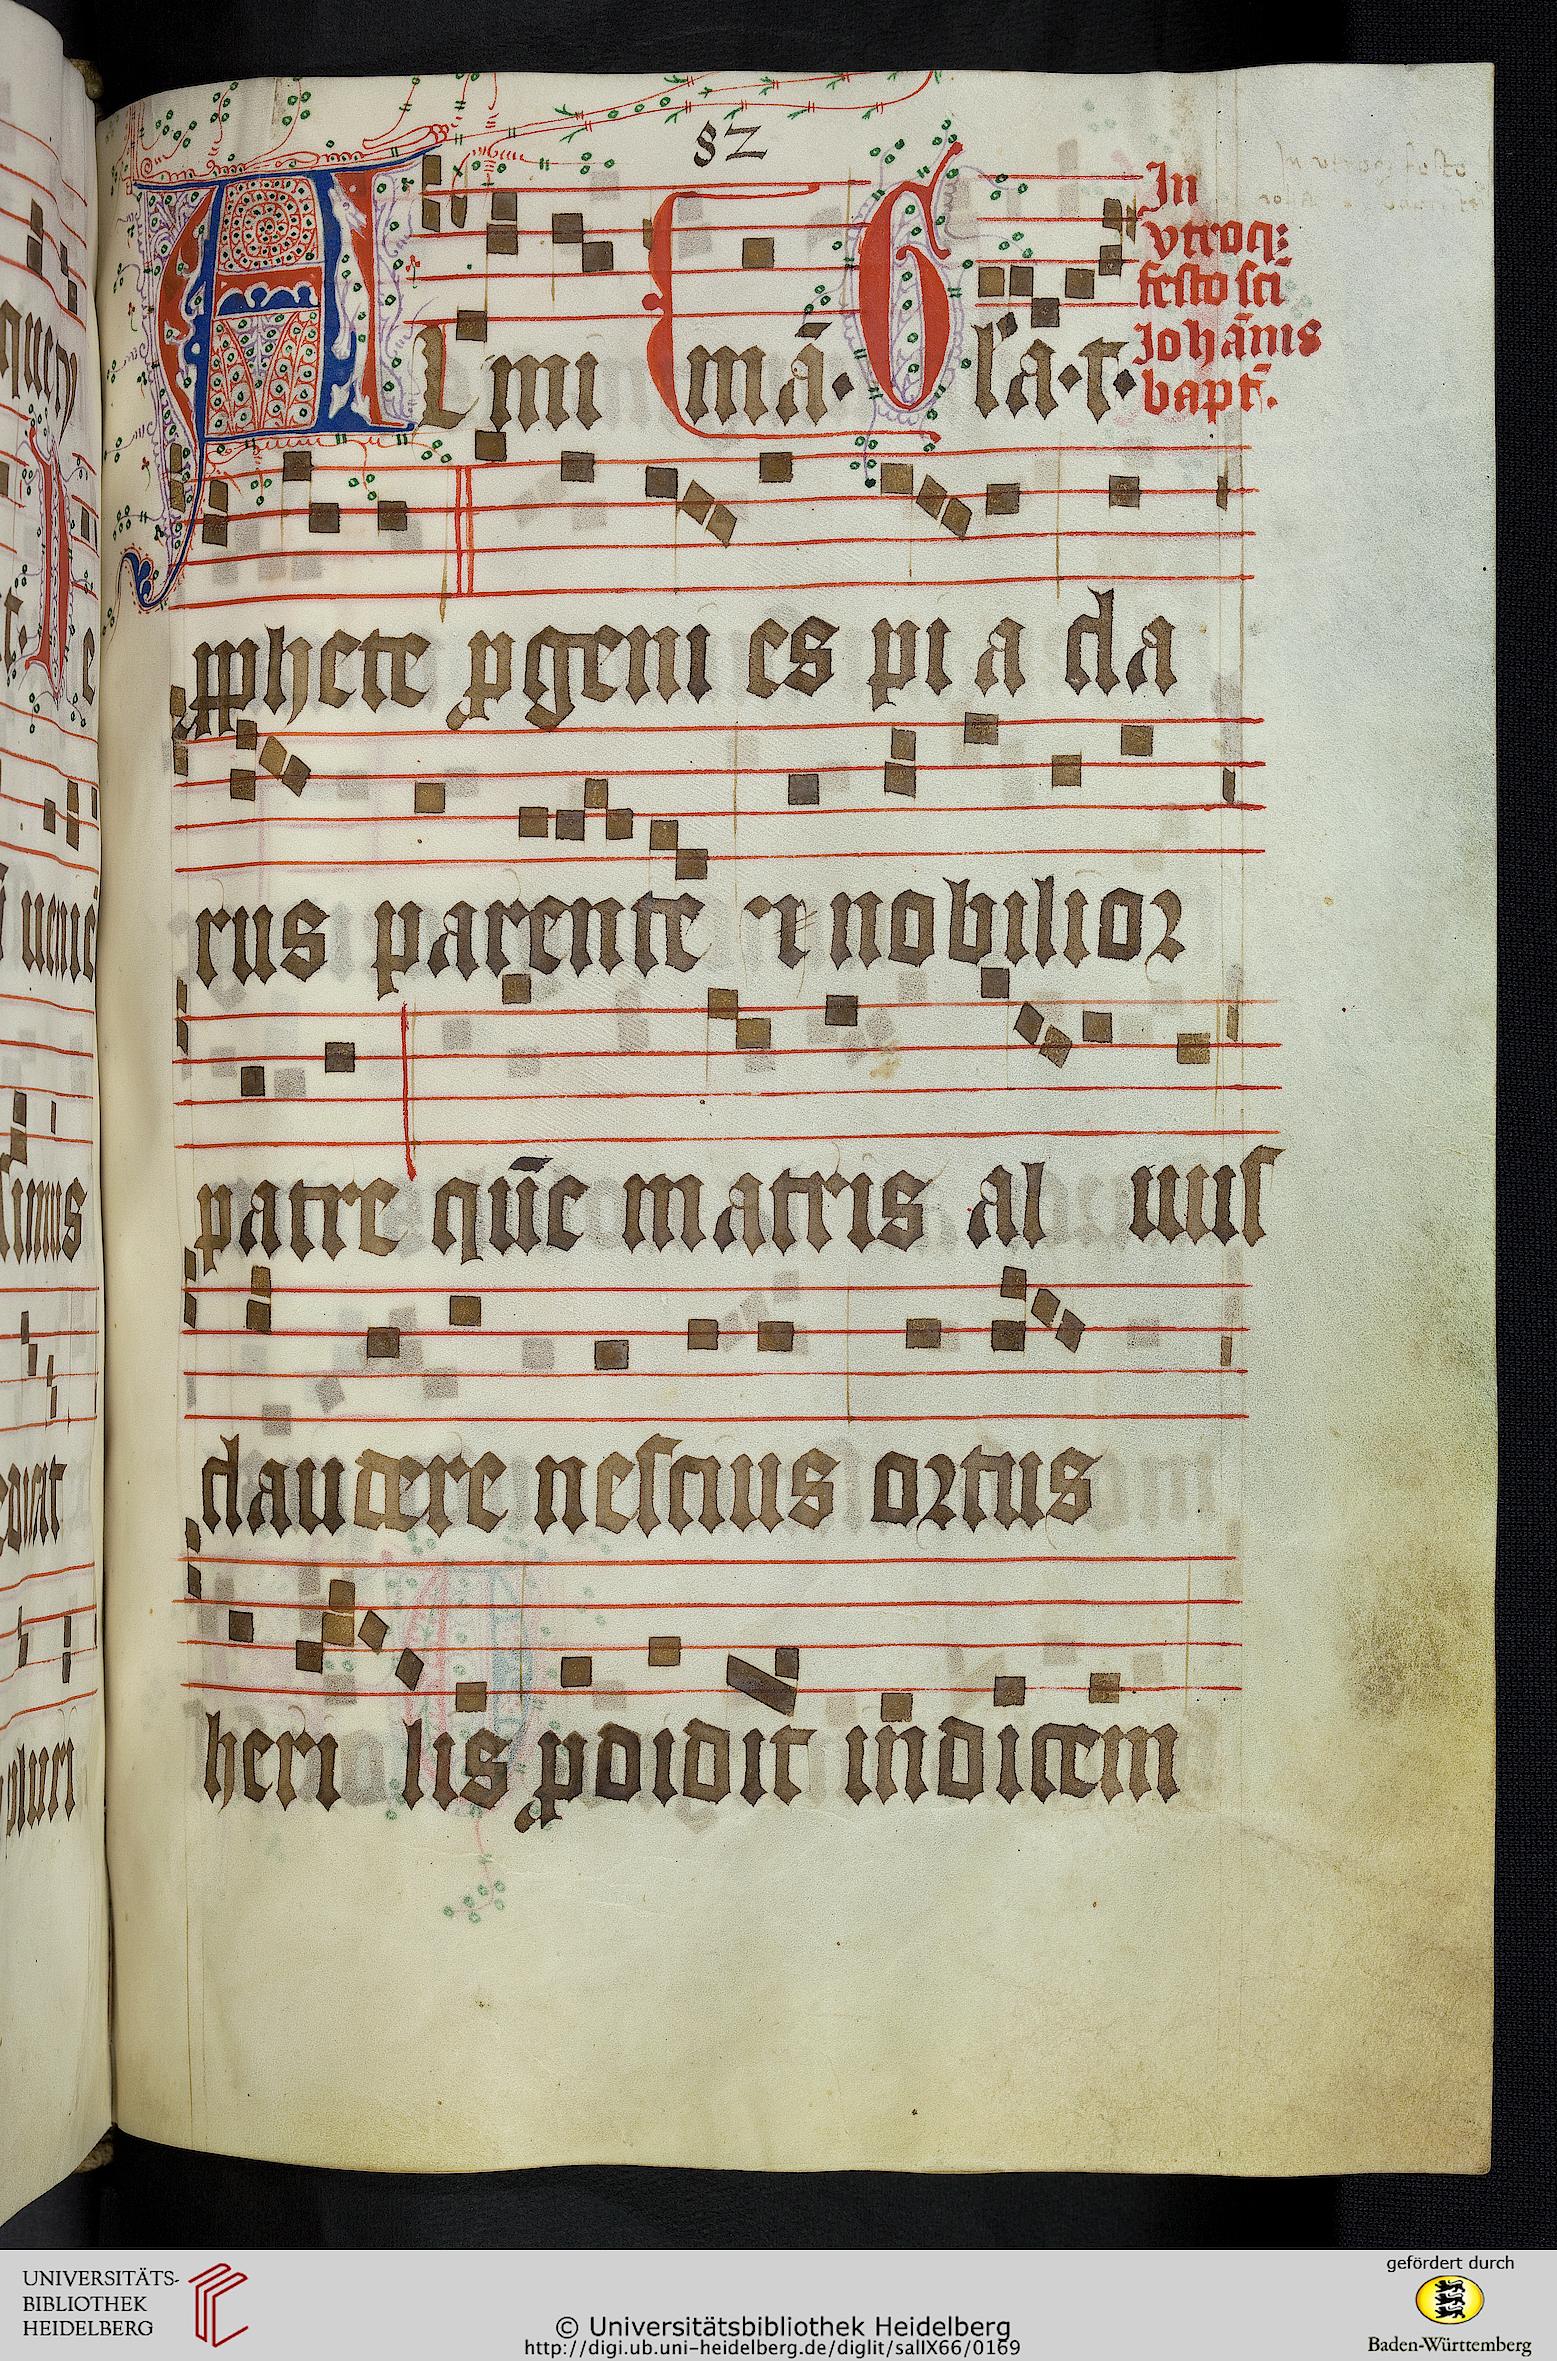 82
ALmi Emā· Gl'a·t·
In
vtroq:
festo sci
Johānis
bapt.
pphete pgeni es pi a da
rus parente ⁊ nobilior
patre qūe matris al uus
claudere nescius ortus
heri lis pdidit indicem
UNIVERSITÄTS-
BIBLIOTHEK
HEIDELBERG
© Universitätsbibliothek Heidelberg
http://digi.ub.uni-heidelberg.de/diglit/salIX66/0169
gefördert durch
Baden-Württemberg